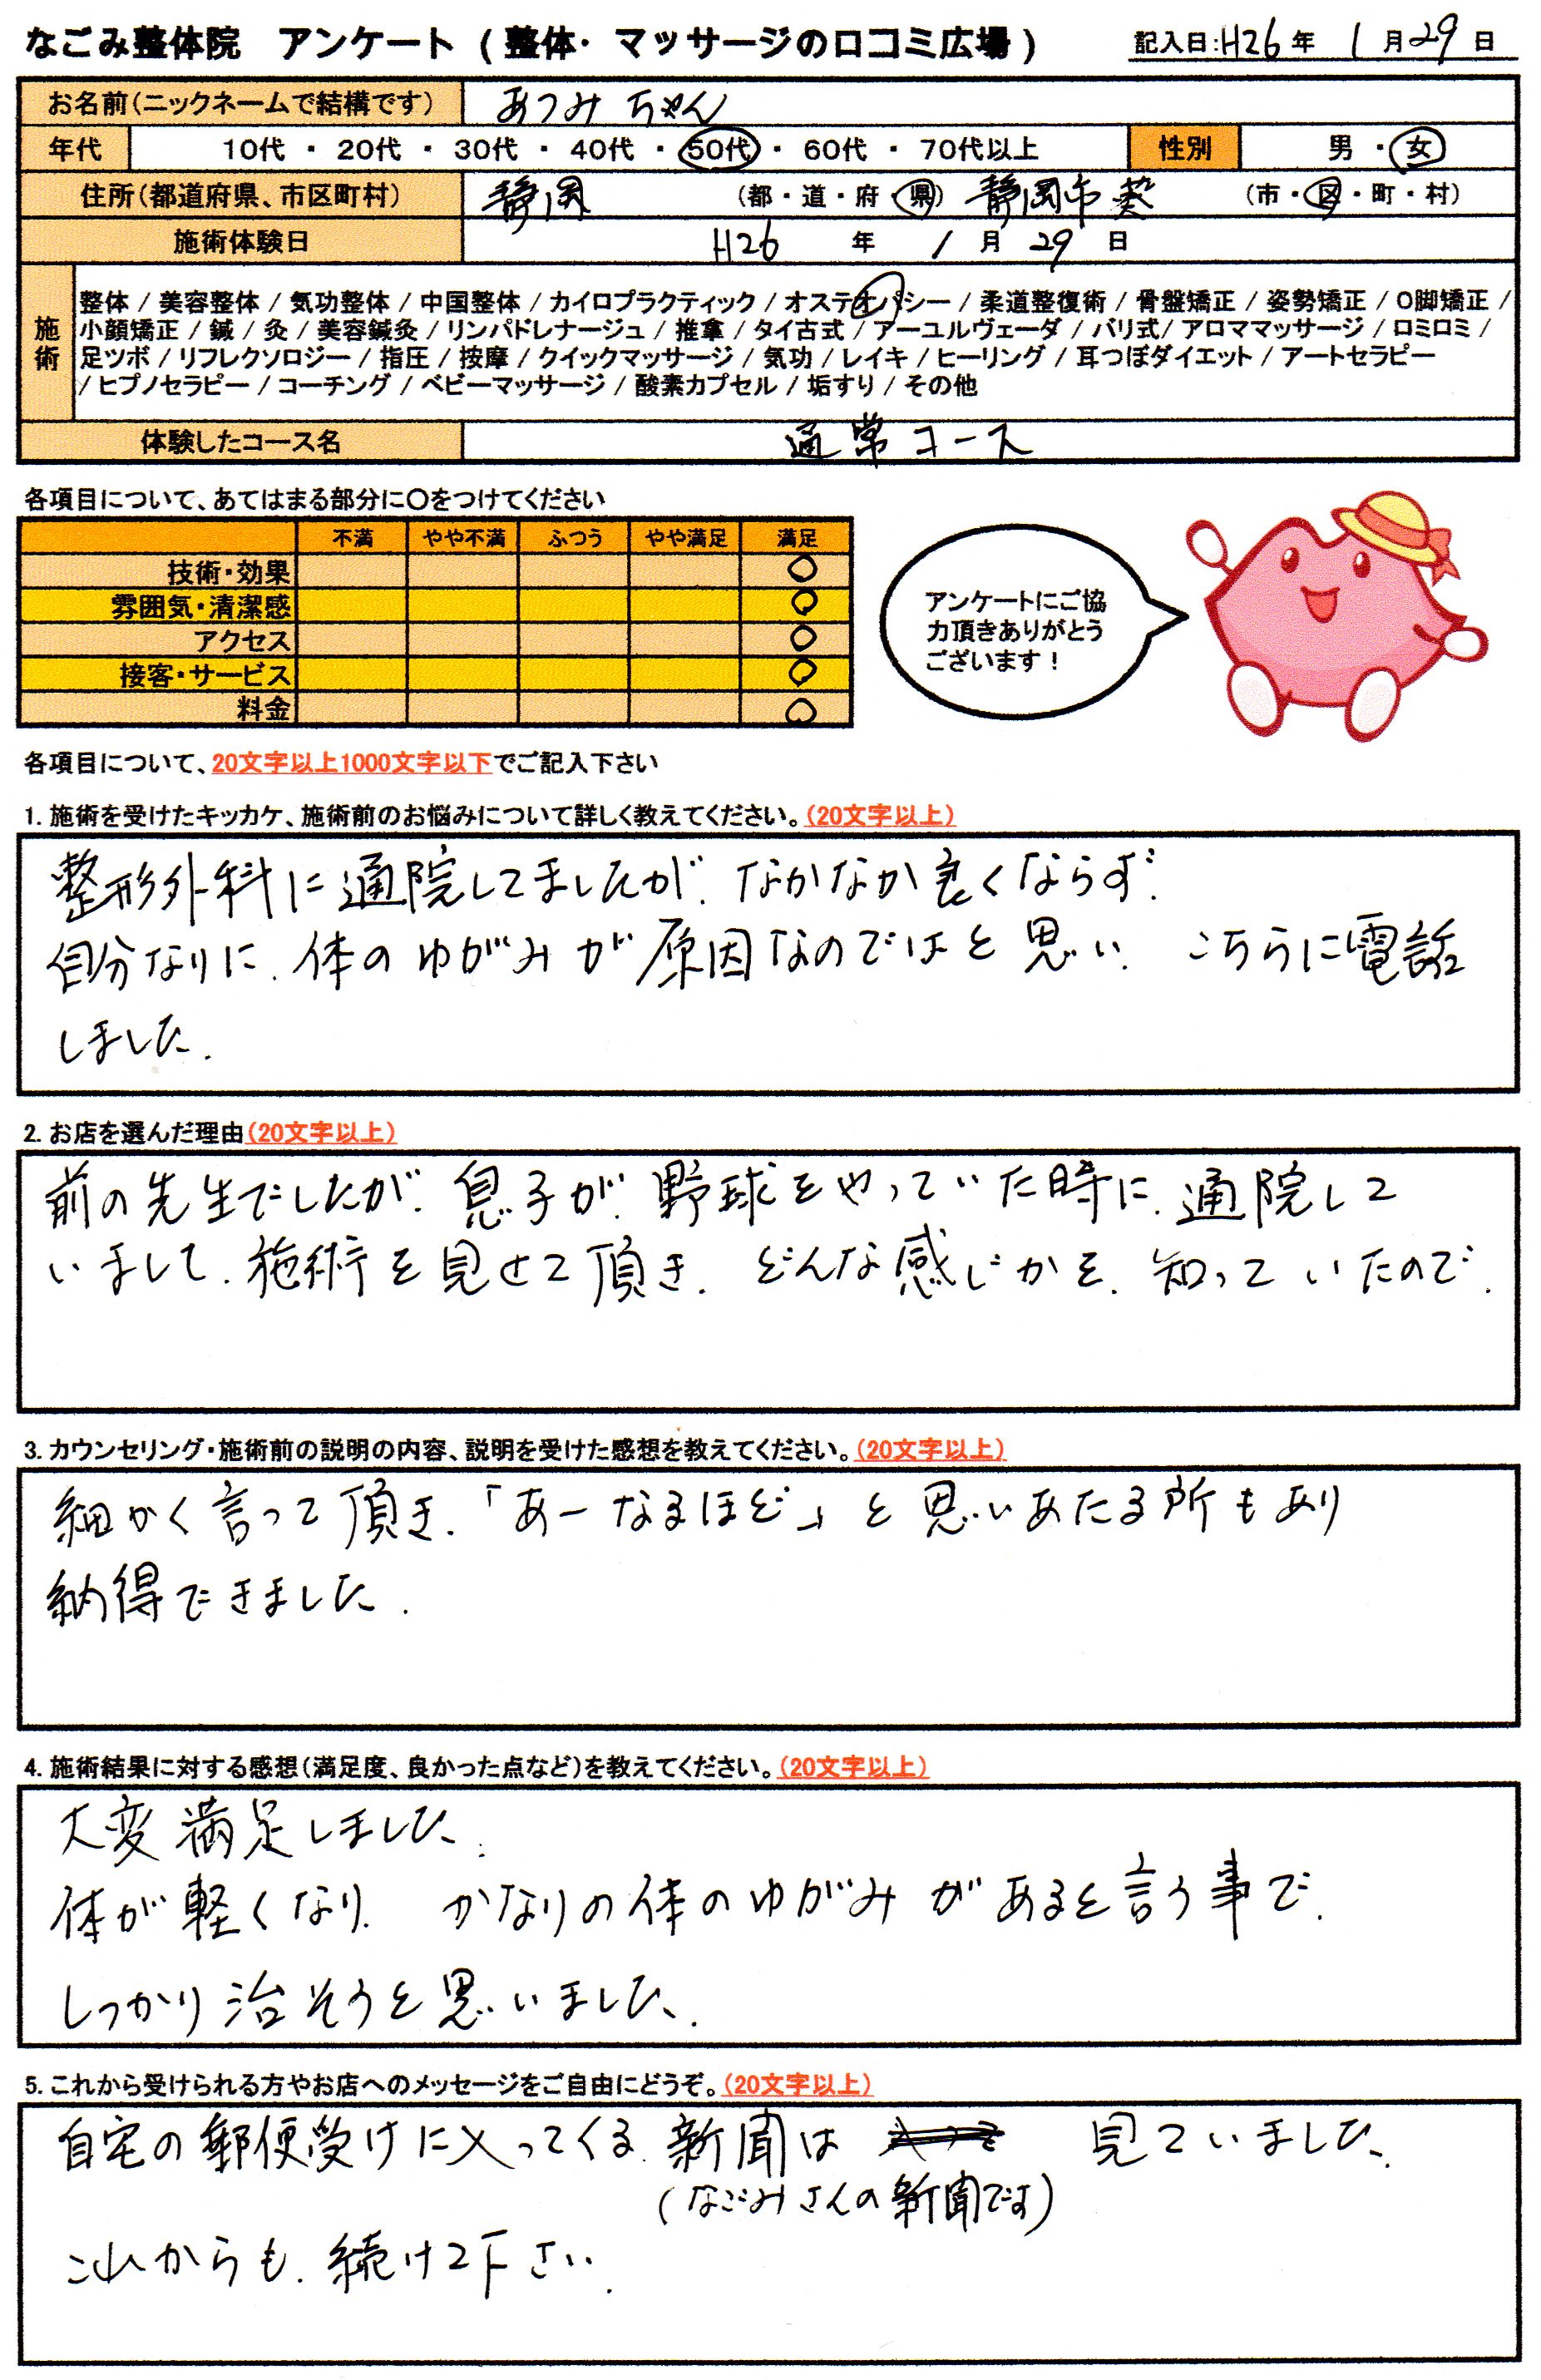 なごみ整体院 アンケート (整体・マッサージの口コミ広場) 記入日:H26年 1月29日
お名前(ニックネームで結構です) あつみちゃん
年代 10代 ・ 20代 ・ 30代 ・ 40代 ・ 50代 ・ 60代 ・ 70代以上 性別 男 ・ 女
住所(都道府県、市区町村) 静岡 (都・道・府・県) 静岡市葵 (市・区・町・村)
施術体験日 H26 年 1月 29 日
施術
整体 / 美容整体 / 気功整体 / 中国整体 / カイロプラクティック / オステオパシー / 柔道整復術 / 骨盤矯正 / 姿勢矯正 / O脚矯正 /
小顔矯正 / 鍼 / 灸 / 美容鍼灸 / リンパドレナージュ / 推拿 / タイ古式 / アーユルヴェーダ / バリ式 / アロママッサージ / ロミロミ /
足ツボ / リフレクソロジー / 指圧 / 按摩 / クイックマッサージ / 気功 / レイキ / ヒーリング / 耳つぼダイエット / アートセラピー
/ ヒプノセラピー / コーチング / ベビーマッサージ / 酸素カプセル / 垢すり / その他
体験したコース名 通常コース
各項目について、あてはまる部分に○をつけてください
不満 やや不満 ふつう やや満足 満足
技術・効果 ○
雰囲気・清潔感 ○
アクセス ○
接客・サービス ○
料金 ○
アンケートにご協
力頂きありがとう
ございます!
各項目について、20文字以上1000文字以下でご記入下さい
1. 施術を受けたキッカケ、施術前のお悩みについて詳しく教えてください。(20文字以上)
整形外科に通院してましたが、なかなか良くならず、
自分なりに、体のゆがみが原因なのではと思い、こちらに電話
しました.
2. お店を選んだ理由(20文字以上)
前の先生でしたが、息子が、野球をやっていた時に、通院して
いまして、施術を見せて頂き、どんな感じかを、知っていたので、
3. カウンセリング・施術前の説明の内容、説明を受けた感想を教えてください。(20文字以上)
細かく言って頂き、「あーなるほど」と思いあたる所もあり
納得できました.
4. 施術結果に対する感想(満足度、良かった点など)を教えてください。(20文字以上)
大変満足しました.
体が軽くなり、かなりの体のゆがみがあると言う事で、
しっかり治そうと思いました.
5. これから受けられる方やお店へのメッセージをご自由にどうぞ。(20文字以上)
自宅の郵便受けに入ってくる新聞は 見ていました、
(なごみさんの新聞です)
これからも、続けて下さい.